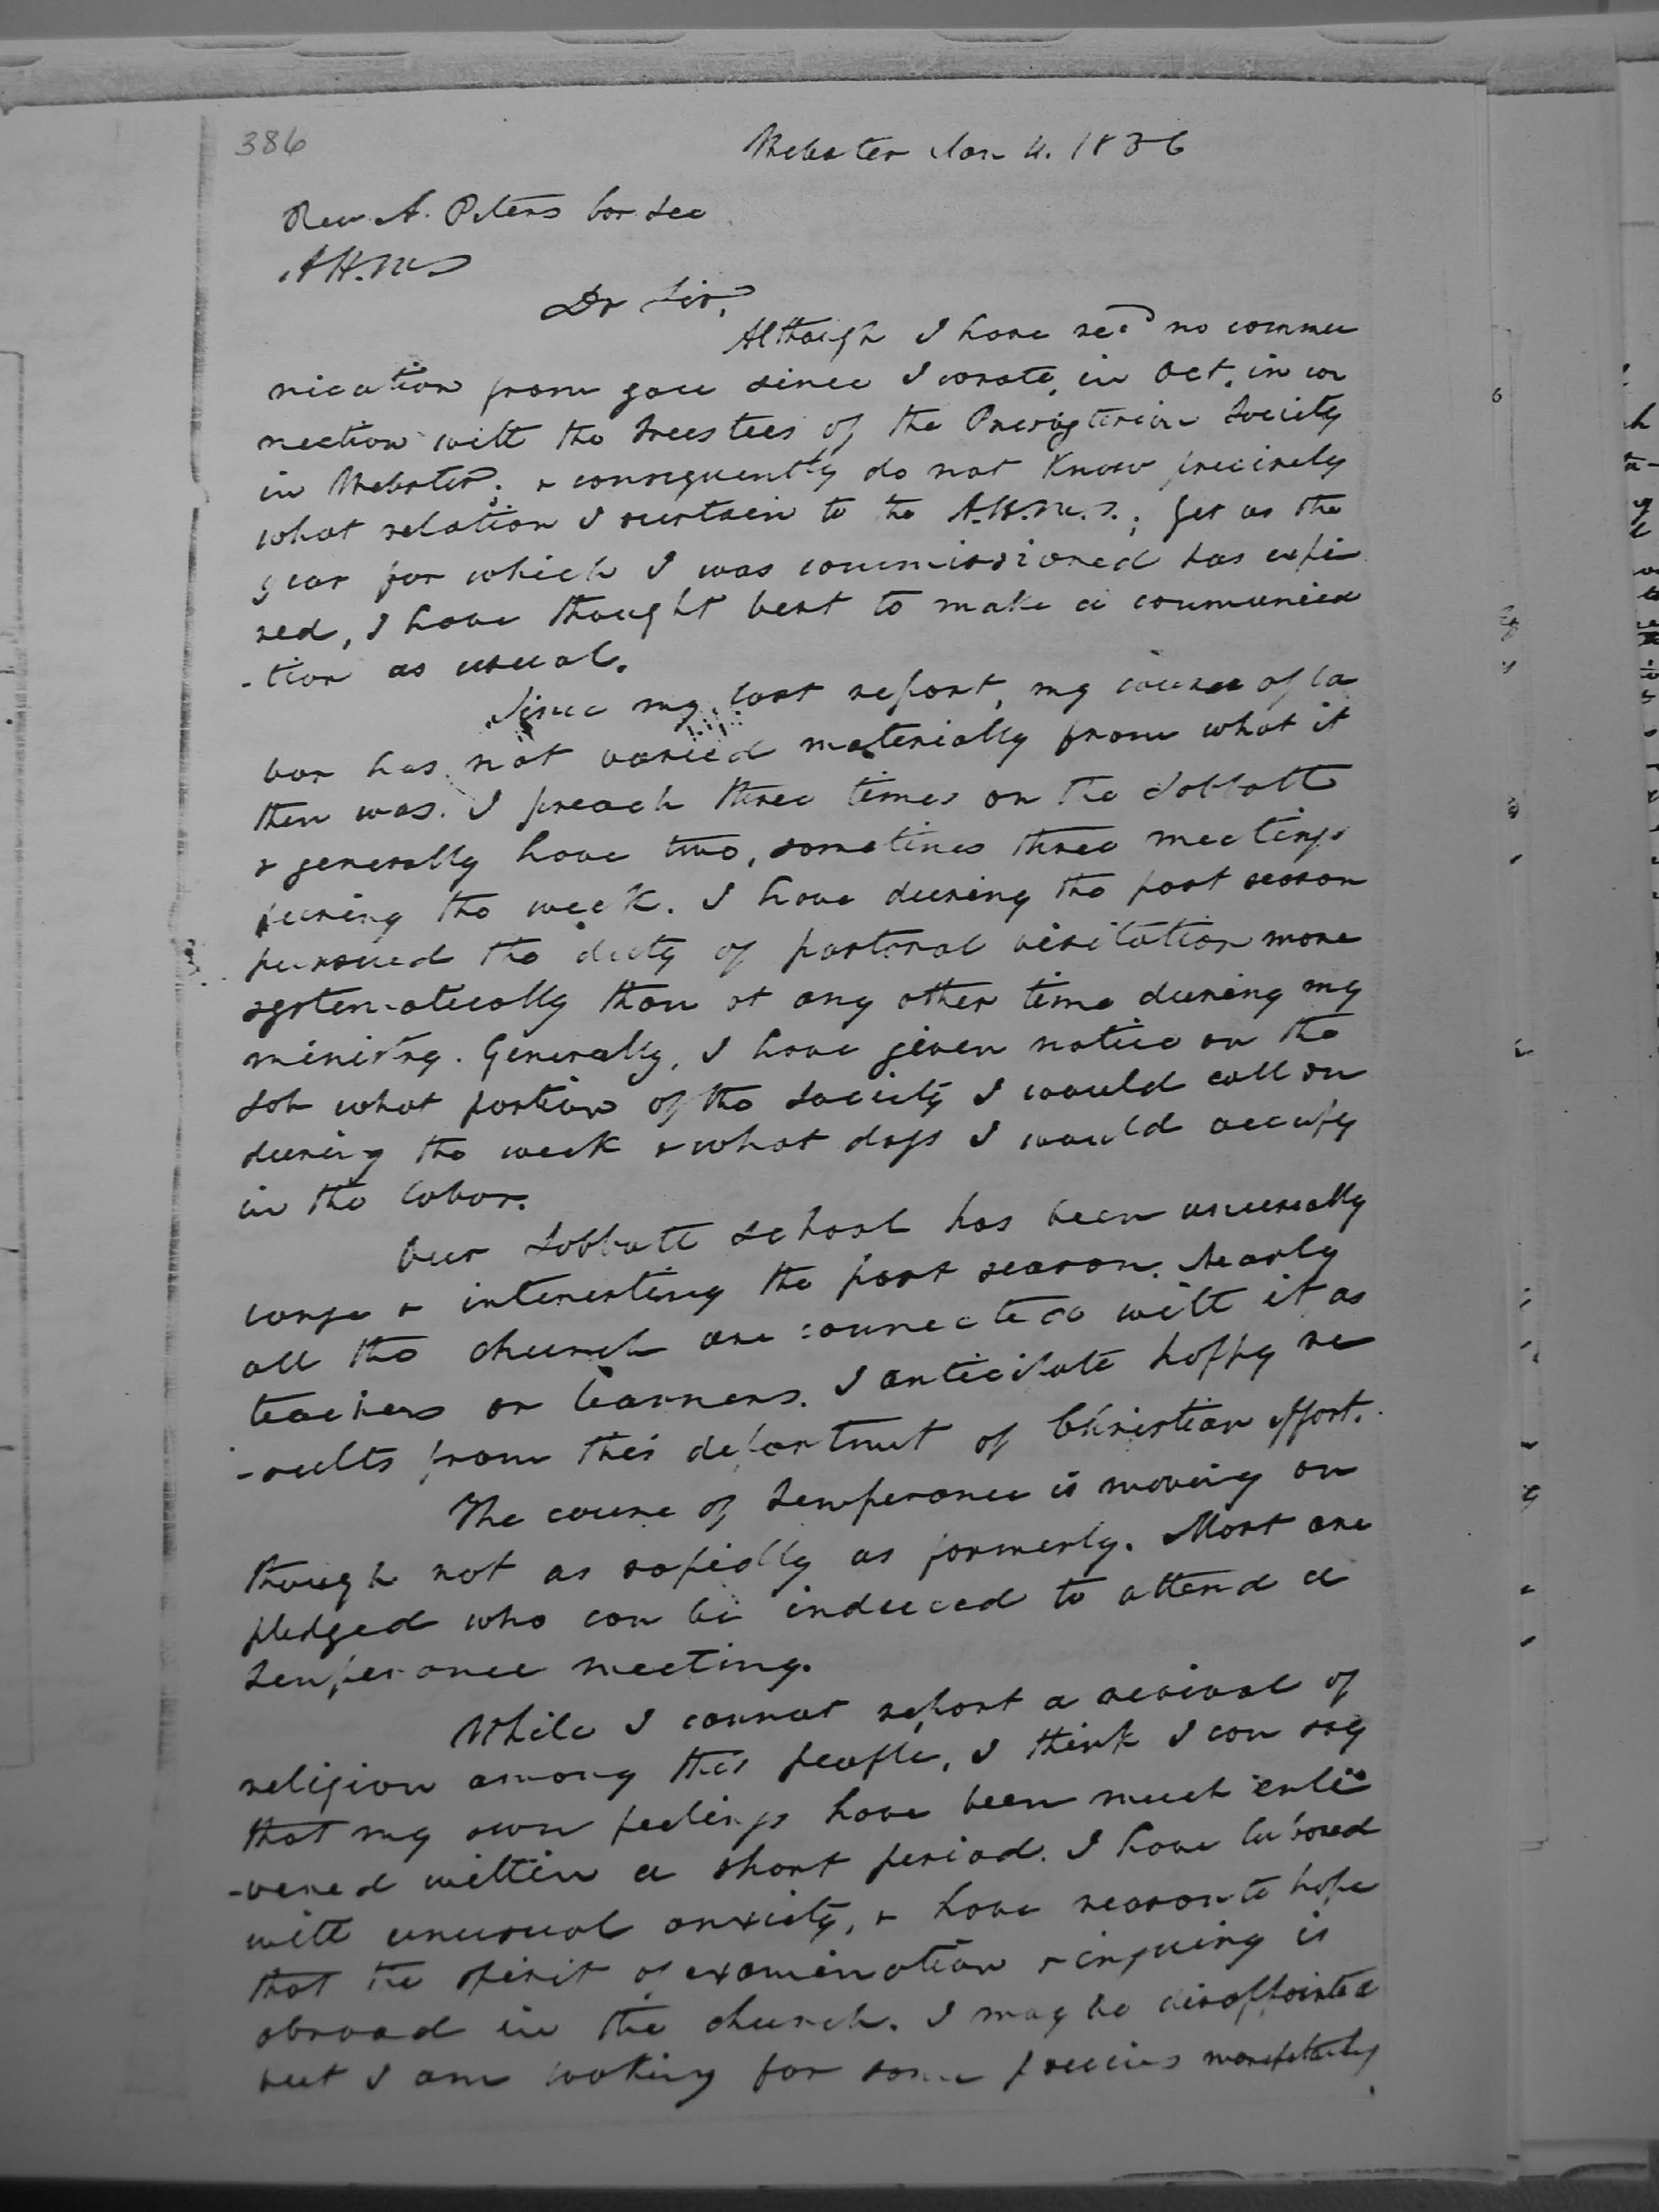 386
Webster Jan 4. 1836
Rev. A. Peters Cor Sec
A.H.M.S
Dr Sir,
Although I have recd no commu
nication from you since I wrote, in Oct. in con
nection with the Trustees of the Presbyterian Society
in Webster; & consequently do not know precisely
what relation I sustain to the A.H.M.S.; yet as the
year for which I was commissioned has expi
red, I have thought best to make a communica
-tion as usual.
Since my last report, my course of la
bor has not varied materially from what it
then was. I preach three times on the Sabbath
& generally have two, sometimes three meetings
during the week. I have during the past season
pursued the duty of pastoral visitation more
systematically than at any other time during my
ministry. Generally, I have given notice on the
Sab what portion of the Society I would call on
during the week & what days I would occupy
in the labor.
Our Sabbath School has been unusually
large & interesting the past season. Nearly
all the church are connected with it as
teachers or learners. I anticipate happy re
-sults from this department of Christian effort.
The cause of Temperance is moving on
though not as rapidly as formerly. Most are
pledged who can be induced to attend a
Temperance meeting.
While I cannot report a revival of
religion among this people, I think I can say
that my own feelings have been much enli
-vened within a short period. I have labored
with unusual anxiety, & have reason to hope
that the spirit of examination & inquiry is
abroad in the church. I may be disappointed
but I am looking for some precious